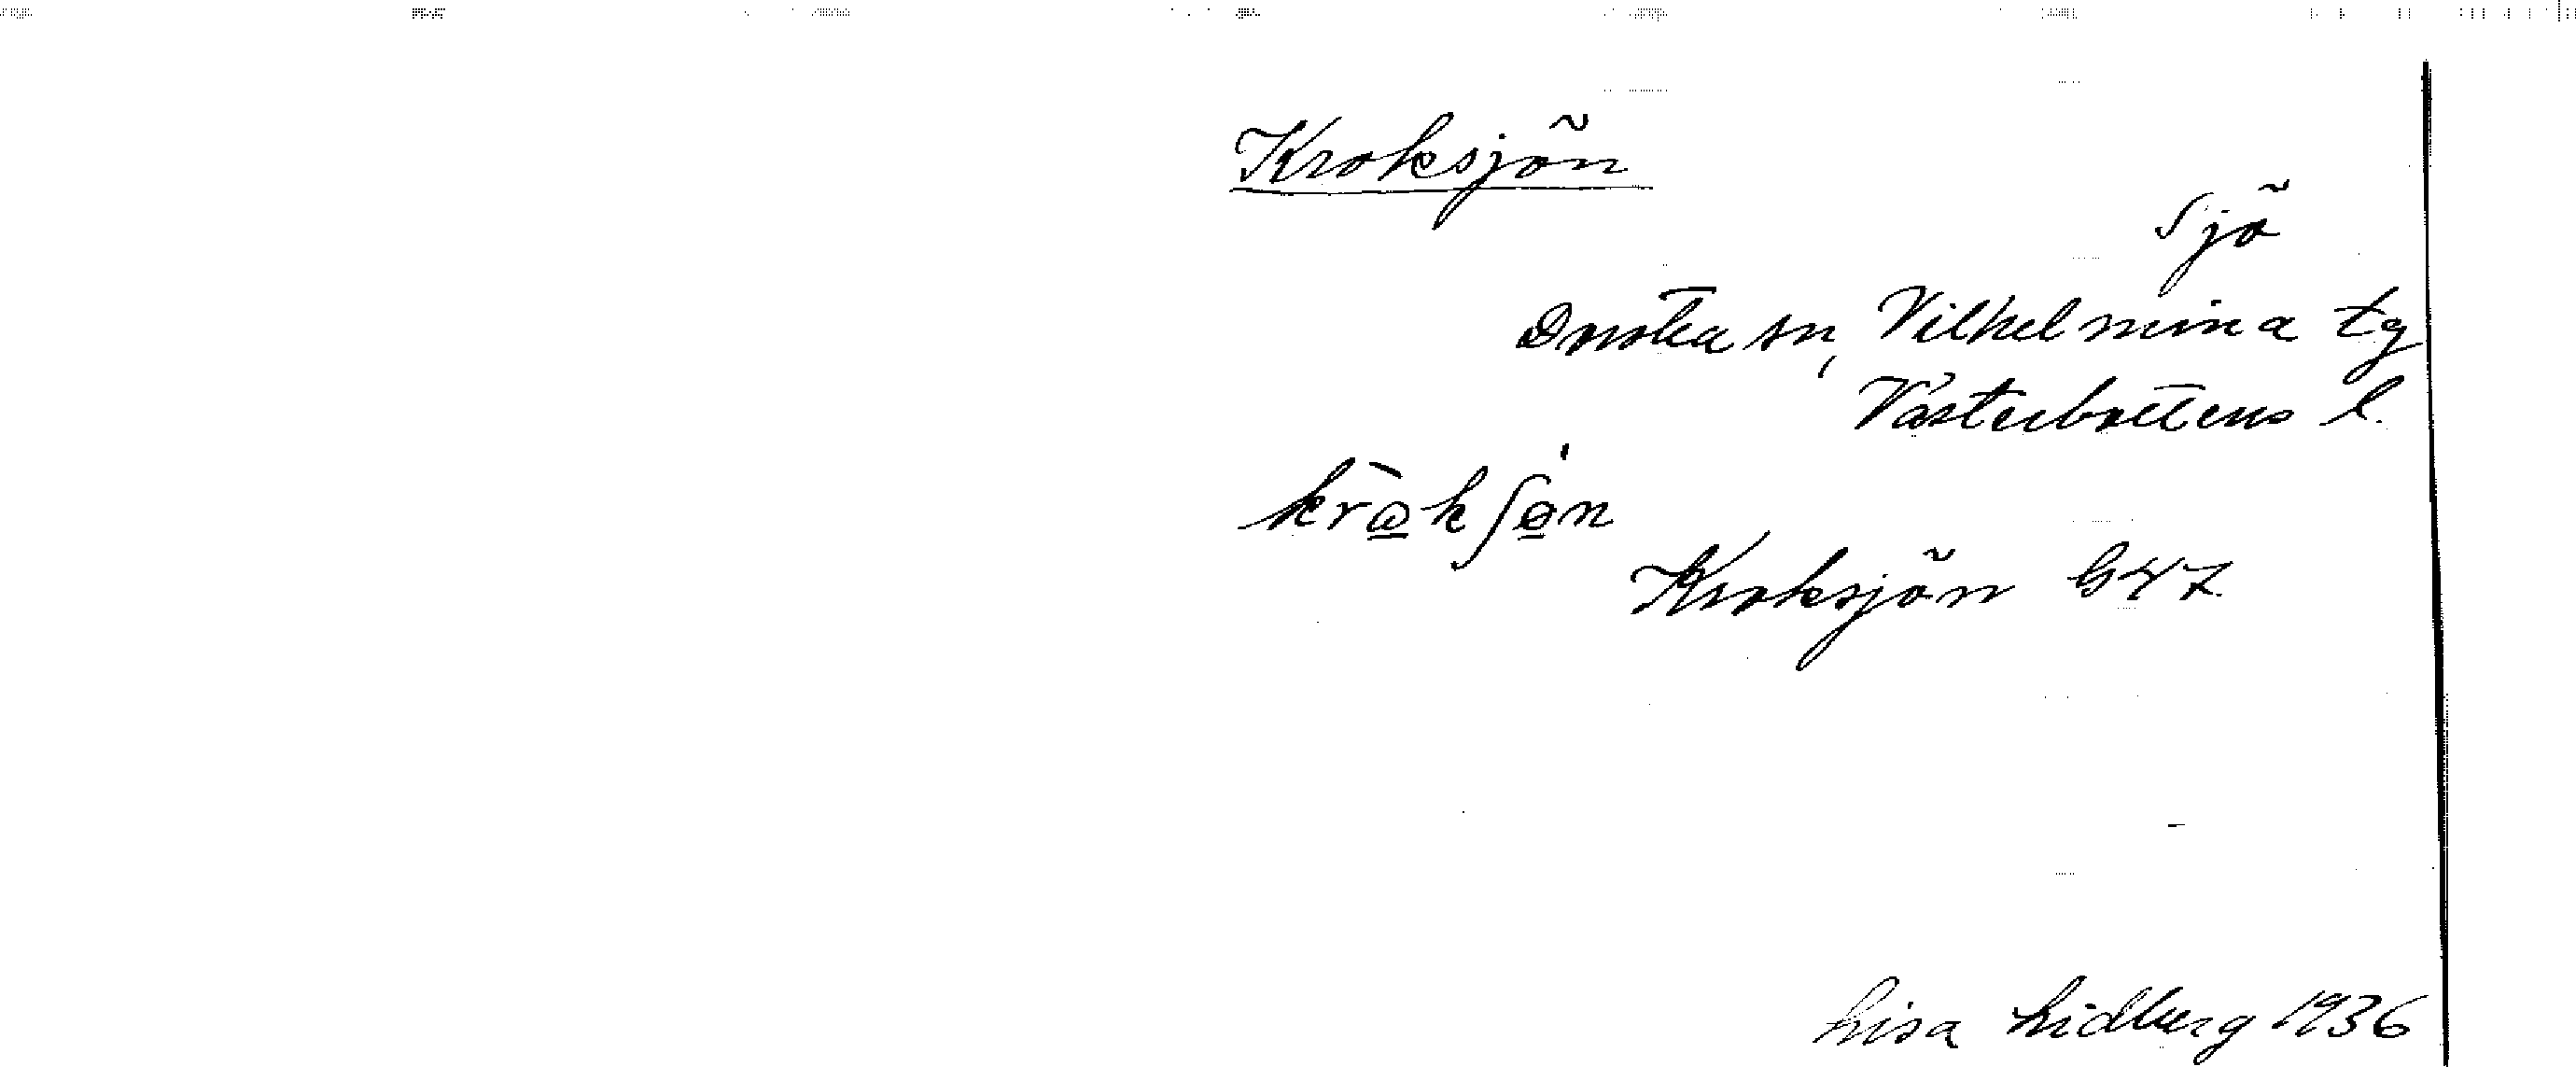 Kroksjön
Sjö
Dorotea sn, Vilhelmina tg
Västerbottens l.
Kroksjön G47
Lisa Lidberg 1936